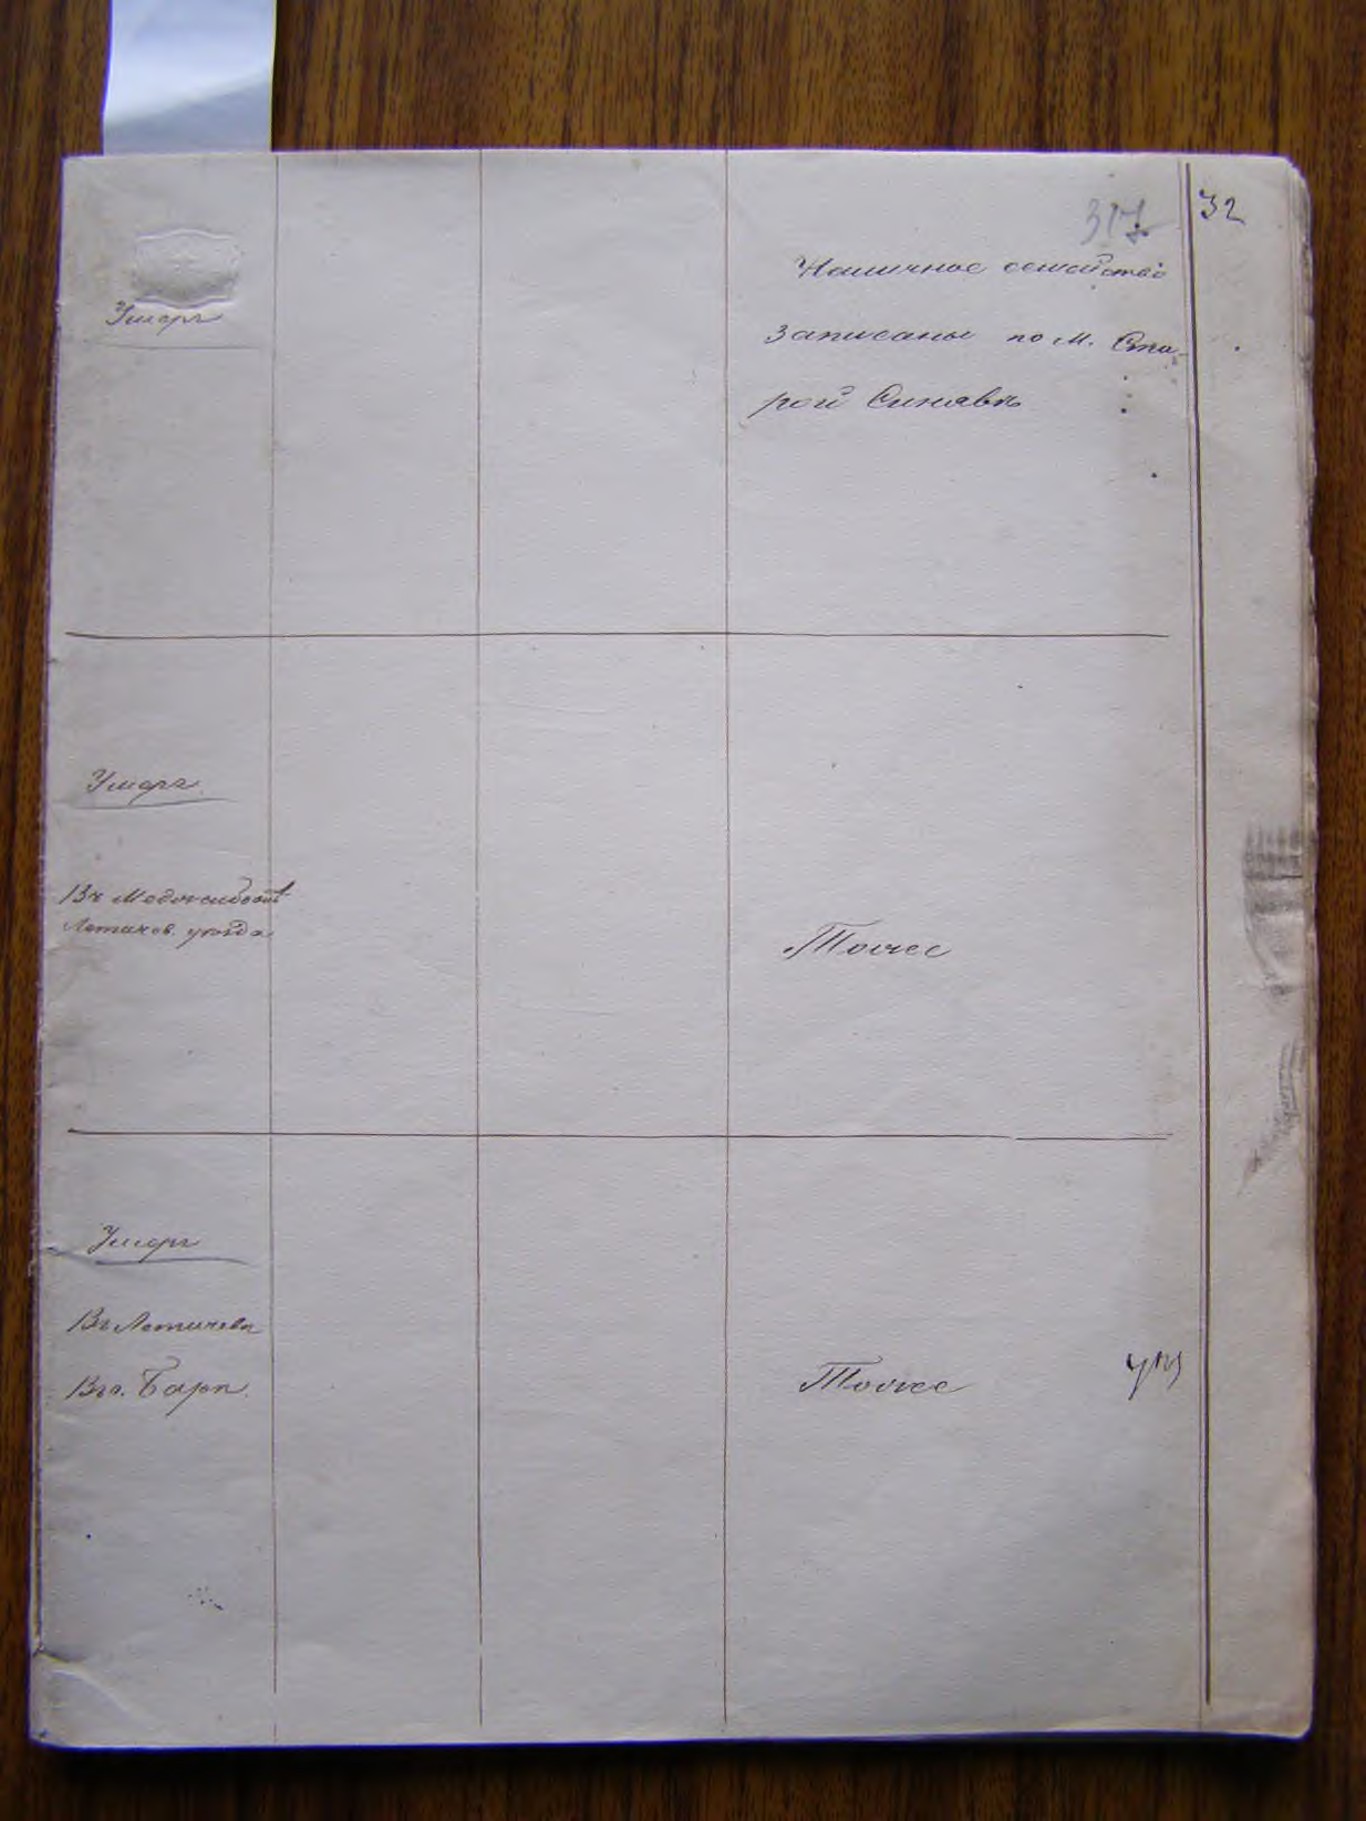 317
32
Умеръ
Наличное семейство
записаны по м. Ста-
рой Синявѣ
Умеръ
Въ Меджибожѣ
Летичев. уѣзда
Тоже
Умеръ
Въ Летичевѣ
Въ г. Барѣ
Тоже